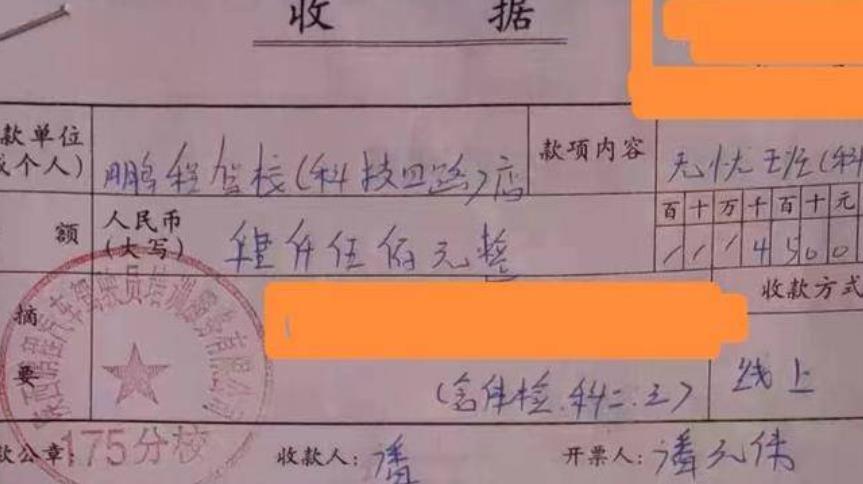 收 据
款单位
或个人)
鹏程驾校(科技四路)店
款项内容
无忧
额
人民币
(大写)
肆仟伍佰元整
百十万千百十元
4500
摘
要
陕西鹏程汽车驾驶员培训服务有限公司
收款方式
(含体检.科二.三)
线上
款公章
175分校
收款人:潘
开票人:潘元伟